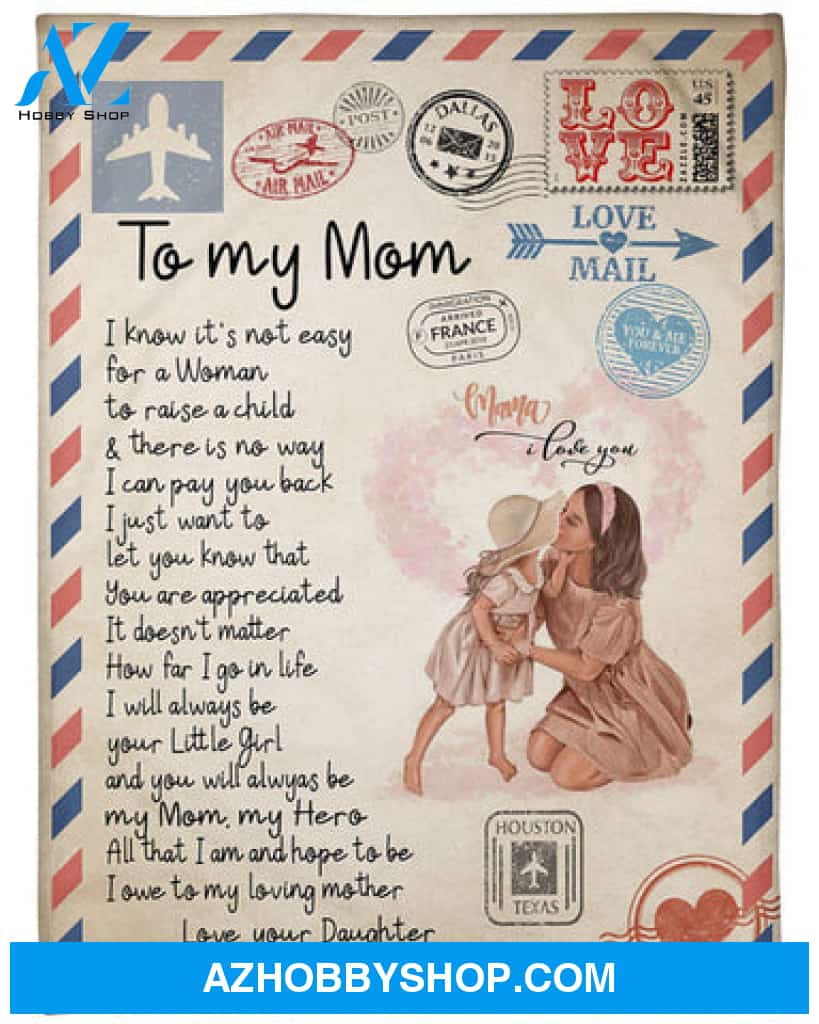 AZ
HOBBY SHOP
AIR MAIL
AIR MAIL
POST
DALLAS
LOVE
U.S.
45
ZAZZLE.COM
To my Mom
LOVE
MAIL
I know it's not easy
for a Woman
to raise a child
& there is no way
I can pay you back
I just want to
let you know that
You are appreciated
It doesn't matter
How far I go in life
I will always be
your Little Girl
and you will alwyas be
my Mom, my Hero
All that I am and hope to be
I owe to my loving mother
Love, your Daughter
IMMIGRATION
ARRIVED
FRANCE
PARIS
YOU & ME
FOREVER
Mama
i love you
HOUSTON
TEXAS
AZHOBBYSHOP.COM